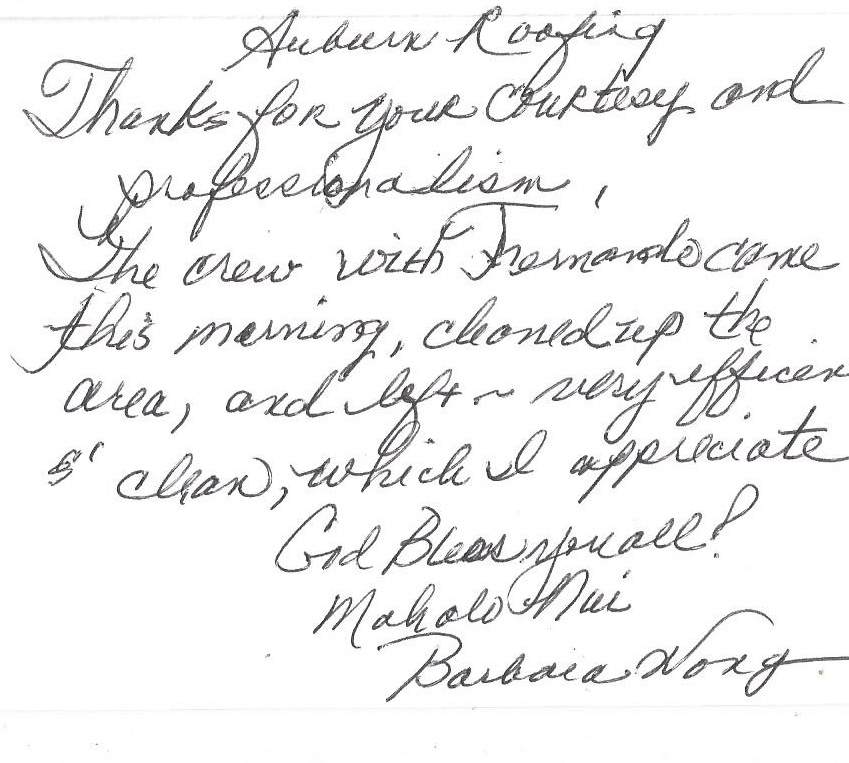 Auburn Roofing
Thanks for your courtesy and
professionalism,
The crew with Fernando came
this morning, cleaned up the
area, and left ~ very efficien
& clean, which I appreciate
God Bless you all!
Mahalo Nui
Barbara Wong